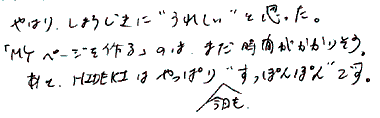 やはり、しょうじきに"うれしい"と思った。
「MYページを作る」のは、まだ時間がかかりそう。
HIDEKIはやっぱり"すっぽんぽん"です。
今日も